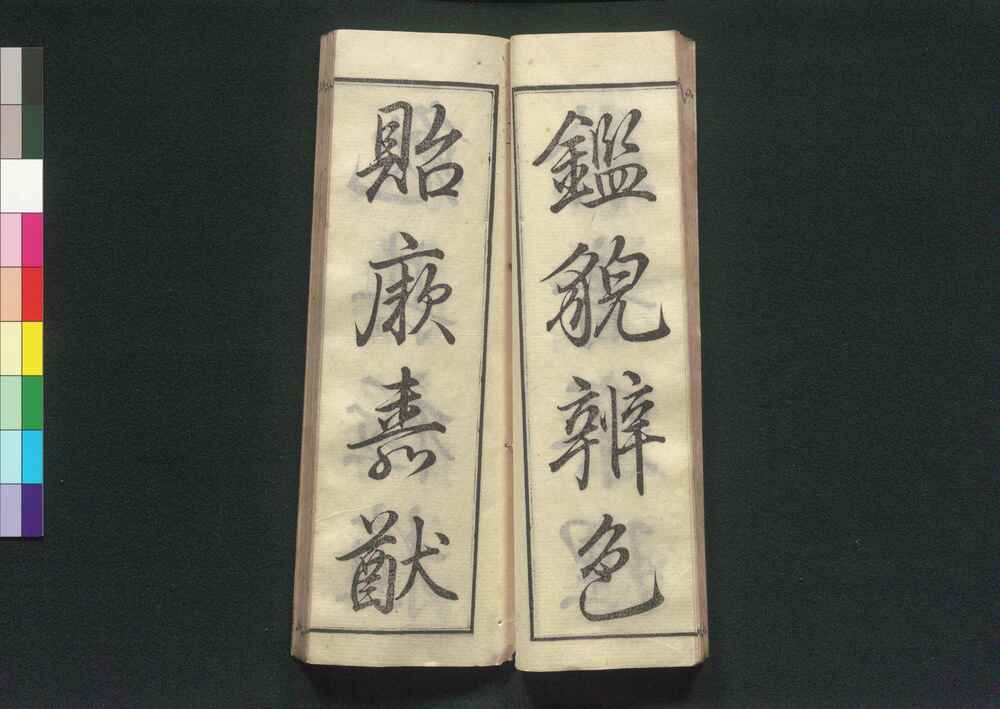 鑑貌辨色
貽厥嘉猷